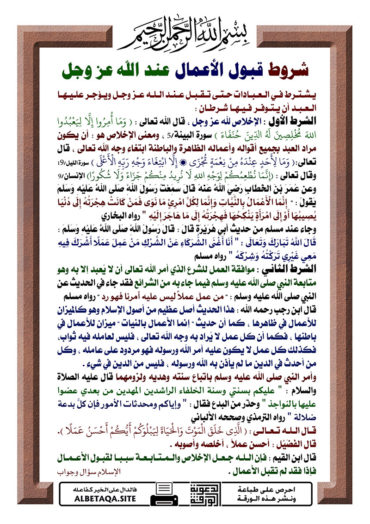 بسم الله الرحمن الرحيم
شروط قبول الأعمال عند الله عز وجل
يشترط في العبادات حتى تقبل عند الله عز وجل ويؤجر عليها
العبد أن يتوفر فيها شرطان :
الشرط الأول : الإخلاص لله عز وجل ، قال الله تعالى : ( وَمَا أُمِرُوا إِلَّا لِيَعْبُدُوا
اللَّهَ مُخْلِصِينَ لَهُ الدِّينَ حُنَفَاءَ ) سورة البينة/5 ، ومعنى الإخلاص هو : أن يكون
مراد العبد بجميع أقواله وأعماله الظاهرة والباطنة ابتغاء وجه الله تعالى ، قال
تعالى: ( وَمَا لِأَحَدٍ عِنْدَهُ مِنْ نِعْمَةٍ تُجْزَى ۞ إِلَّا ابْتِغَاءَ وَجْهِ رَبِّهِ الْأَعْلَى ) سورة الليل/19
وقال تعالى : (إِنَّمَا نُطْعِمُكُمْ لِوَجْهِ اللَّهِ لَا نُرِيدُ مِنْكُمْ جَزَاءً وَلَا شُكُورًا) الإنسان/9
وعن عُمَرَ بْنِ الخطابِ رَضِيَ اللهُ عنه قال سمعت رَسُولَ اللهِ صَلى اللهُ عَلَيْهِ وَسَلم
يقول : " إنَّمَا الأَعْمَالُ بِالنِّيَّاتِ وَإنَمَا لِكُلِّ امْرِئٍ مَا نَوَى فَمَنْ كَانَتْ هِجْرَتُهُ إِلَى دُنْيَا
يُصِيبُهَا أَوْ إِلَى امْرَأَةٍ يَنْكِحُهَا فَهِجْرَتُهُ إِلَى مَا هَاجَرَ إِلَيْهِ " رواه البخاري
وجاء عند مسلم من حديث أبي هُرَيْرَةَ قال : قَالَ رَسُولُ اللَّهِ صَلى اللَّهُ عَلَيْهِ وَسَلم :
قَالَ اللهُ تَبَارَكَ وَتَعَالَى : " أَنَا أَغْنَى الشُّرَكَاءِ عَنْ الشِّرْكِ مَنْ عَمِلَ عَمَلًا أَشْرَكَ فِيهِ
مَعِي غَيْرِي تَرَكْتُهُ وَشِرْكَهُ " رواه مسلم
الشرط الثاني : موافقة العمل للشرع الذي أمر الله تعالى أن لا يُعبد إلا به وهو
متابعة النبي صلى الله عليه وسلم فيما جاء به من الشرائع فقد جاء في الحديث عن
النبي صلى الله عليه وسلم : " من عمل عملاً ليس عليه أمرنا فهو رد " رواه مسلم
قال ابن رجب رحمه الله : هذا الحديث أصل عظيم من أصول الإسلام وهو كالميزان
للأعمال في ظاهرها ، كما أن حديث " إنما الأعمال بالنيات " ميزان للأعمال في
باطنها ، فكما أن كل عمل لا يُراد به وجه الله تعالى ، فليس لعامله فيه ثواب،
فكذلك كل عمل لا يكون عليه أمر الله ورسوله فهو مردود على عامله ، وكل
من أحدث في الدين ما لم يأذن به الله ورسوله ، فليس من الدين في شيء .
وأمر النبي صلى الله عليه وسلم باتباع سنته وهديه ولزومهما قال عليه الصلاة
والسلام : " عليكم بسنتي وسنة الخلفاء الراشدين المهديين من بعدي عضوا
عليها بالنواجذ " وحذر من البدع فقال : " وإياكم ومحدثات الأمور فإن كل بدعة
ضلالة " رواه الترمذي وصححه الألباني
قال الله تعالى : ( الَّذِي خَلَقَ الْمَوْتَ وَالْحَيَاةَ لِيَبْلُوَكُمْ أَيُّكُمْ أَحْسَنُ عَمَلًا ).
قال الفضيل : أحسن عملاً ، أخلصه وأصوبه .
قال ابن القيم : فإن الله جعل الإخلاص والمتابعة سببا لقبول الأعمال
فإذا فقد لم تقبل الأعمال .
الإسلام سؤال وجواب
احرص على طباعة
ونشر هذه الورقة
الدعوية
الورقة
فالدال على الخير كفاعله
ALBETAQA.SITE